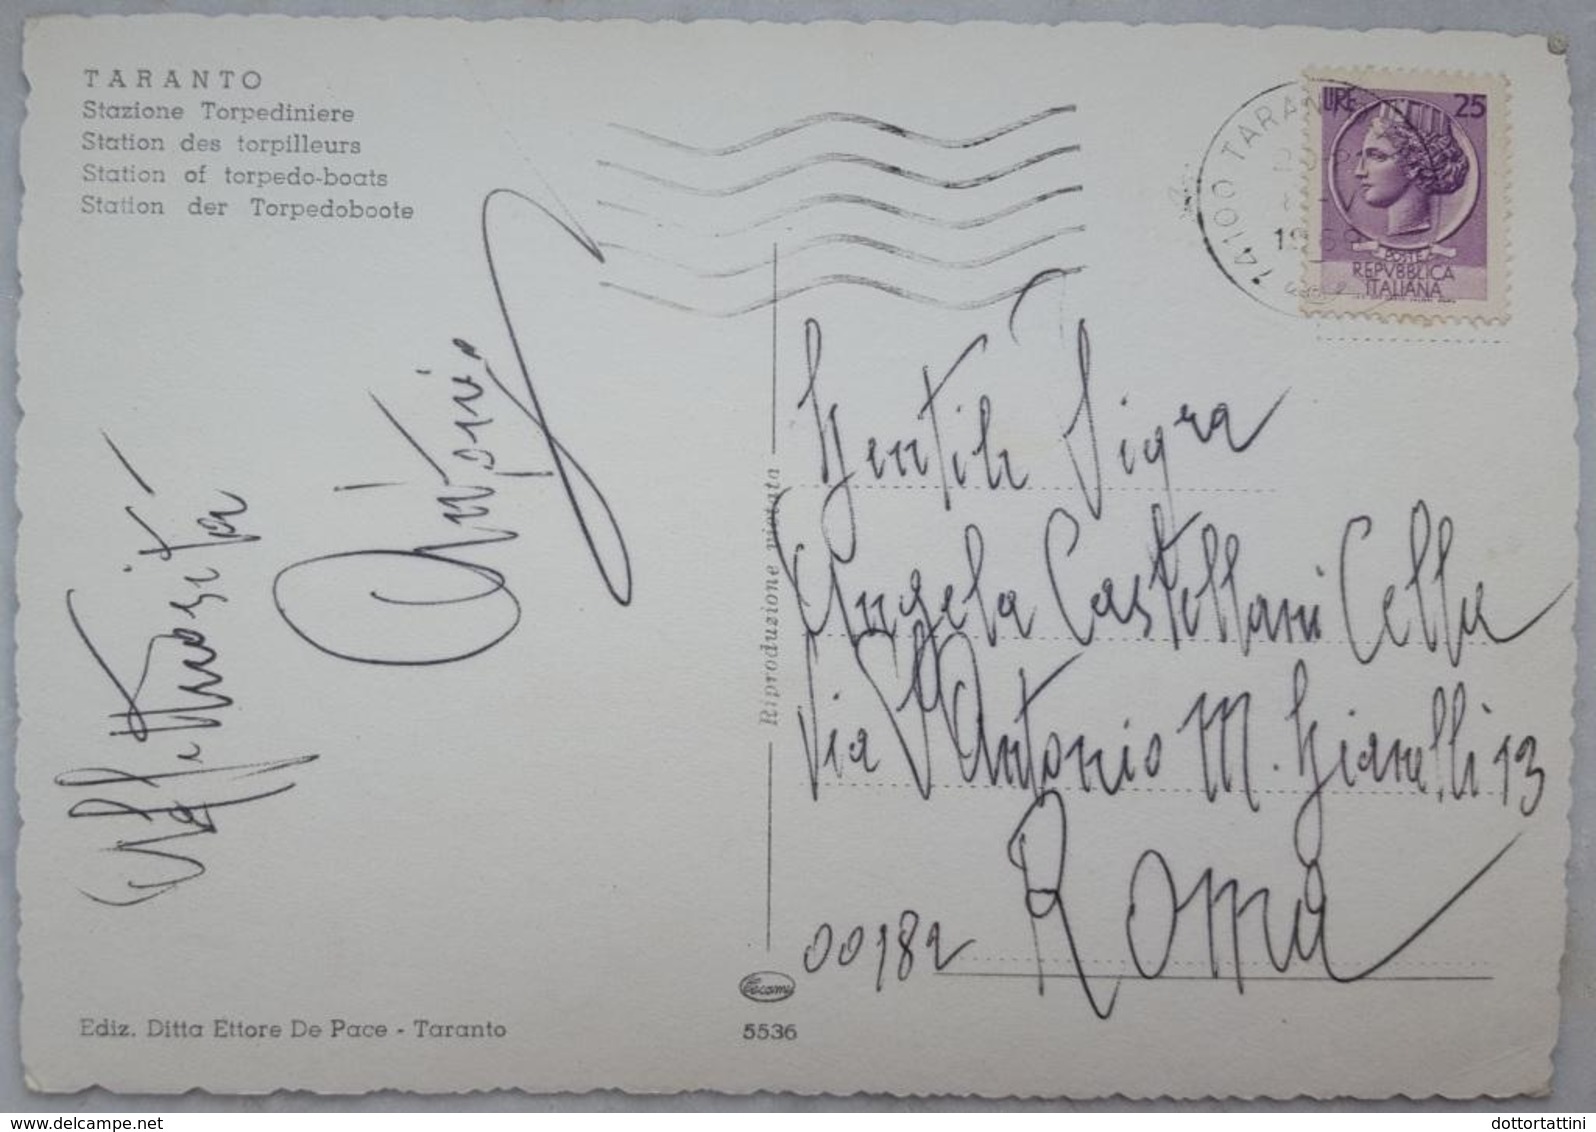 TARANTO
Stazione Torpediniere
Station des torpilleurs
Station of torpedo-boats
Station der Torpedoboote
LIRE 25
POSTE
REPVBBLICA
ITALIANA
74100 TARAN
Affettuosità
Gentile Sigra
Angela Castellani Cella
Via S. Antonio M. Gianelli 13
00182 Roma
Riproduzione vietata
Ediz. Ditta Ettore De Pace - Taranto
5536
delcampe.net
dottortattini